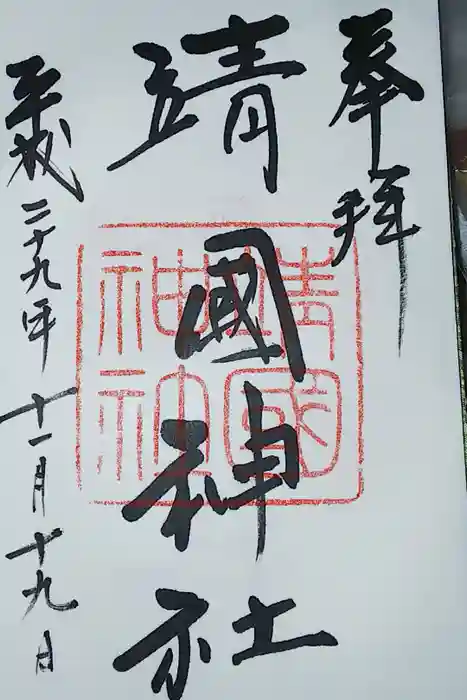 奉拝
靖國神社
靖國
神社
平成二十九年十一月十九日